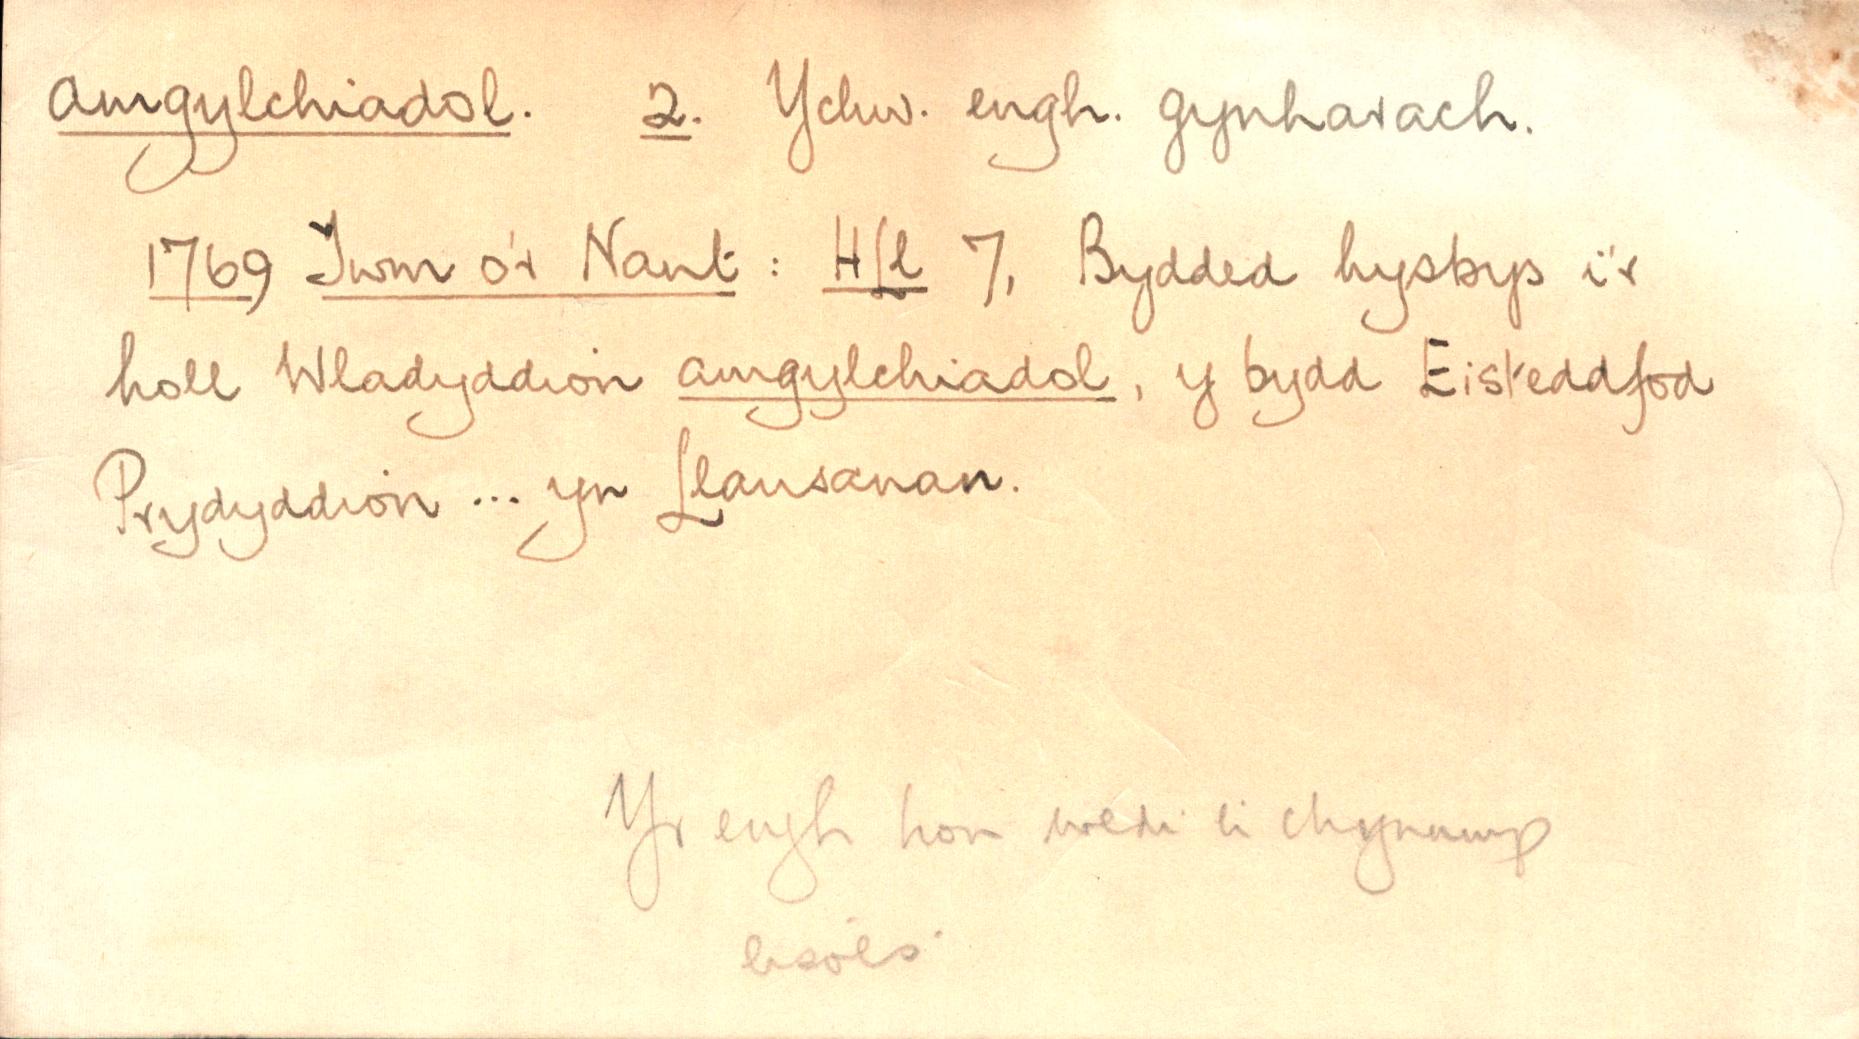 amgylchiadol. 2. Ychw. engh. gynharach.
1769 Twm o'r Nant: HLl 7, Bydded hysbys i'r
holl Wladyddion amgylchiadol, y bydd Eisteddfod
Prydyddion ... yn Llansanan.
Yr engh hon wedi ei chynnwys
eisoes